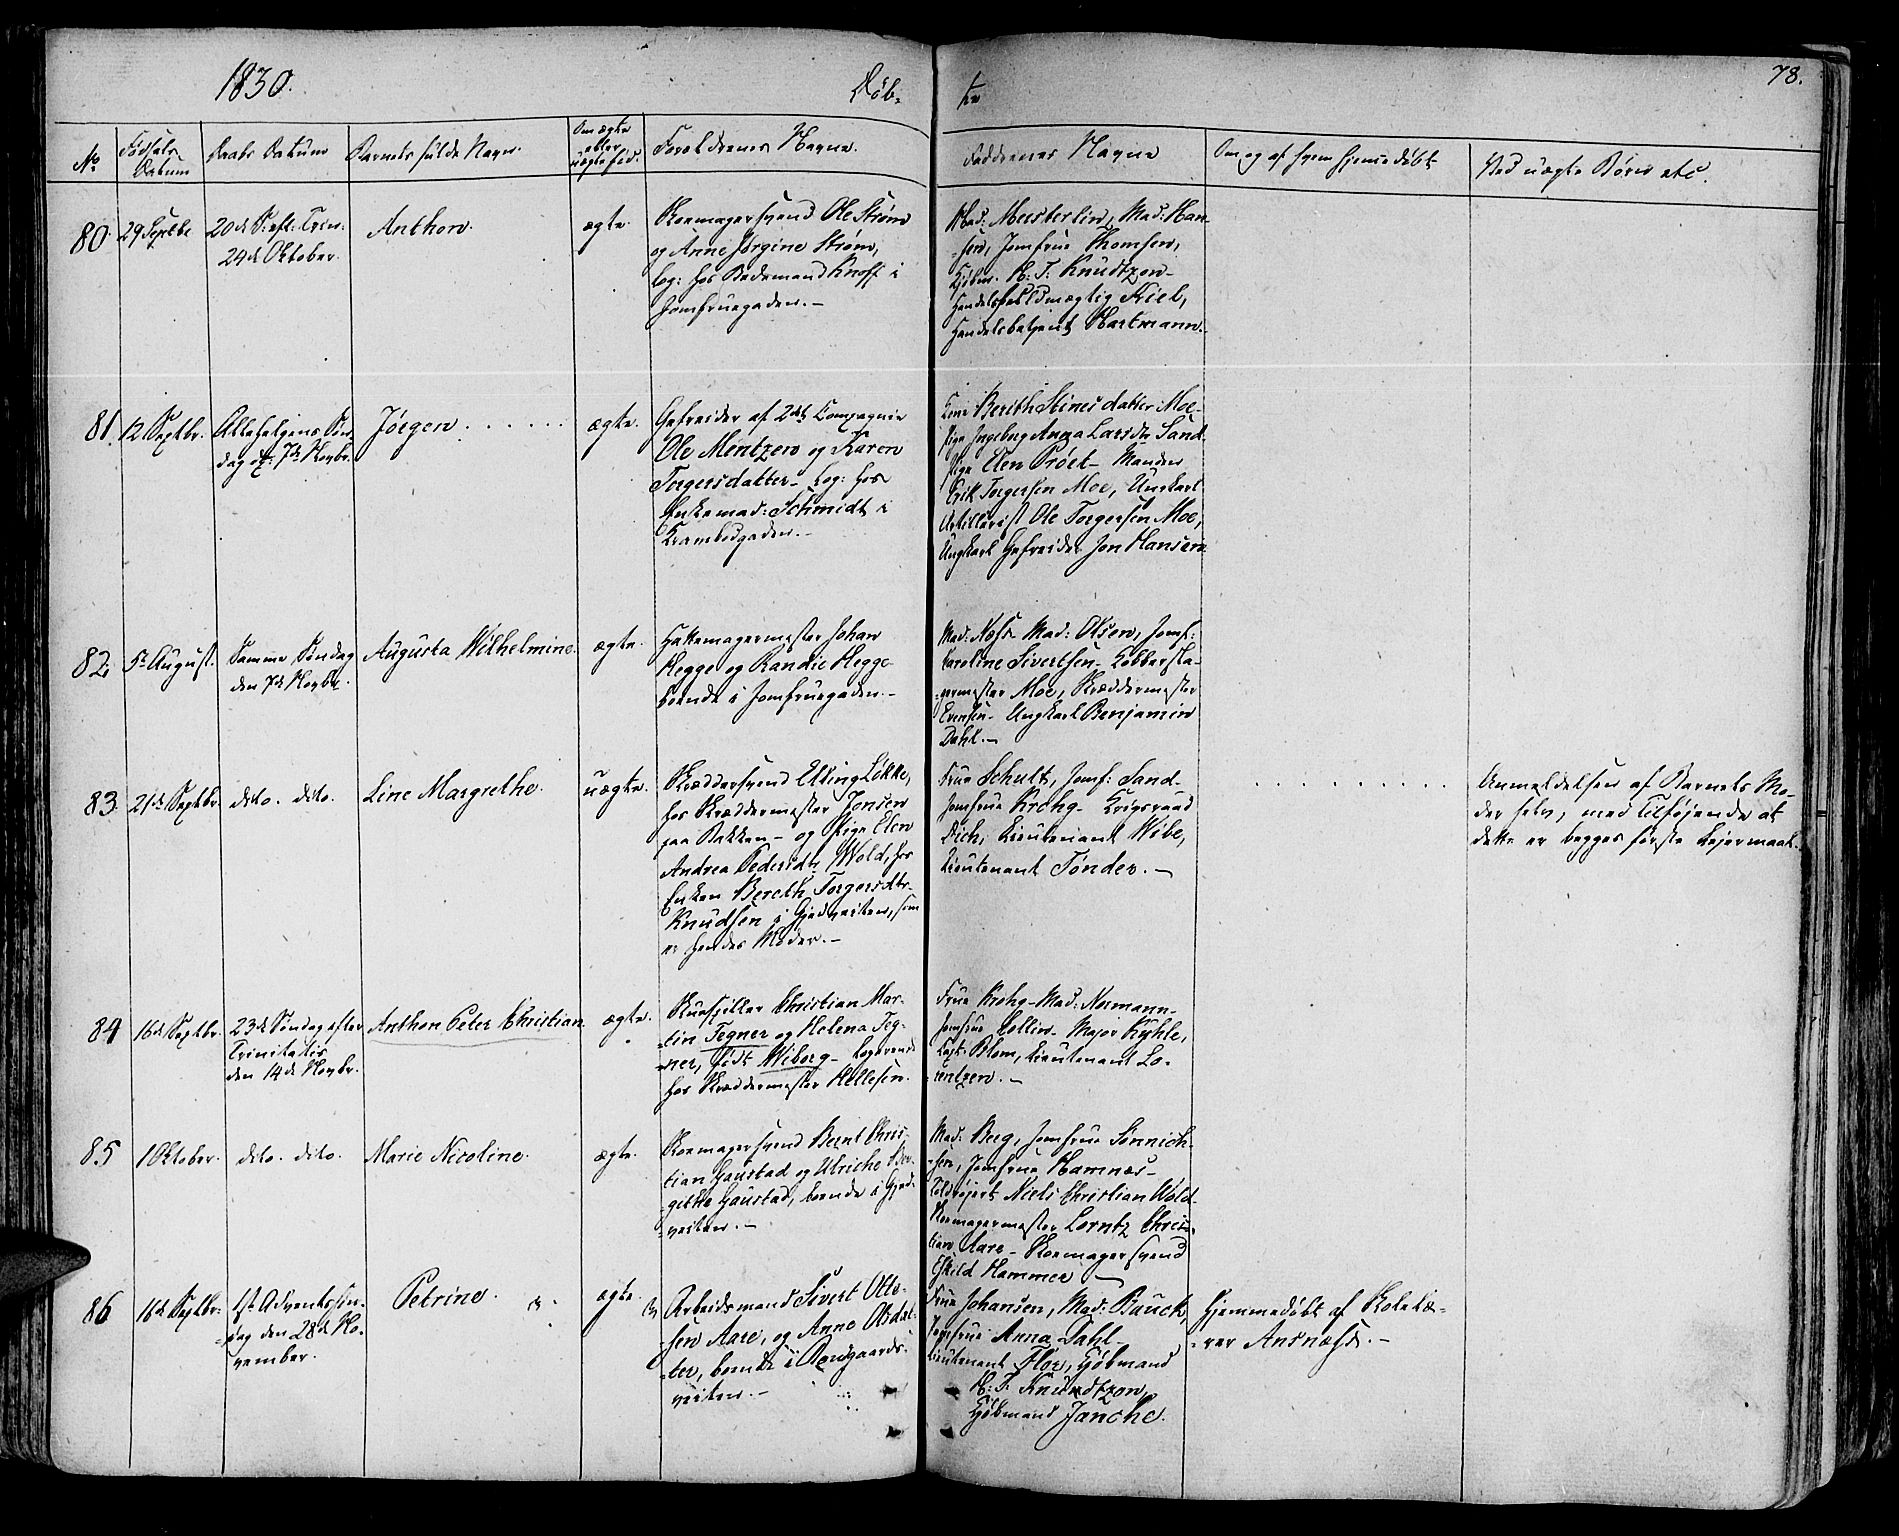 1830.
Døb-
te
78.
No
Fødsels Datum
Daabs Datum
Barnets fulde Navn.
Om ægte eller uægte fød.
Forældrenes Navne.
Faddernes Navne
Om og af hvem hjemmedøbt
Ved uægte Børn etc.
80.
29 Septbr
20de S. eft. Trin.
24de Oktober.
Anthon.
ægte.
Skomagersvend Ole Strøm
og Anne Jørgine Strøm,
log: hos Bedemand Knoff i
Jomfruegaden.-
Mad: Meisterlin, Mad: Han-
-sen, Jomfrue Thomsen,
Kjøbm. H. T. Knudtzon-
Handelsfuldmægtig Friel,
Handelsbetjent Hartmann.
81.
12 Septbr.
Allehelgens Søn-
dag d: 7de Novbr.
Jørgen . . . . . .
ægte.
Gefreider af 2det Compagnie
Ole Mentzen og Karen
Torgersdatter- log: hos
Enkemad: Schmidt i
Krambodgaden.-
Kone Berith Stinesdatter Moe-
Pige Ingeborg Anna Larsdtr Sand-
Pige Elen Prøet- Manden
Erik Torgersen Moe, Ungkarl
Artillerist Ole Torgersen Moe,
Ungkarl Gefreider Jon Hansen.
82.
5te August.
Samme Søndag
den 7de Novbr.
Augusta Wilhelmine.
ægte.
Hattemagermester Johan
Hegge og Randie Hegge-
boende i Jomfruegaden.-
Mad: Næss. Mad: Olsen, Jomf:
Caroline Sivertsen- Kobbersla-
-germester Moe, Skræddermester
Evensen- Ungkarl Benjamin
Dahl.-
83.
21de Septbr.
dito. dito.
Line Margrethe.
uægte.
Skræddersvend Elling Løkke,
hos Skræddermester Jensen
paa Bakken- og Pige Elen
Andrea Pedersdtr Wold, hos
Enken Bereth Torgersdtr.
Knudsen i Gjedveiten, som
er hendes Moder.-
Frue Schult, Jomf: Sand-
Jomfrue Krohg- Krigsraad
Dich, Lieutenant Wibe,
Lieutenant Tønder.-
. . . . . . . . . .
Anmeldelsen af Barnets Mo-
der selv, med Tilføjende at
dette er begges første Lejermaal.
84
16de Septbr.
23de Søndag efter
Trinitatis
den 14de Novbr.
Anthon Peter Christian.
ægte.
Skuespiller Christian Mar-
-tin Tegner og Helena Teg-
-ner, født Wiborg- logerende
hos Skræddermester Hellesen.
Frue Krohg- Mad: Normann-
Jomfrue Collin- Major Kyhle,
Capt: Blom, Lieutenant Lo-
-rentzen.-
85
1 Oktober.
dito. dito.
Marie Nicoline.
ægte.
Skomagersvend Bernt Chris-
tian Gaustad og Ulriche Bir-
-gitte Gaustad, boende i Gjed-
-veiten.-
Mad: Berg, Jomfrue Sønnich-
-sen, Jomfrue Hamnæs-
Niels Christian Wold-
Skomagermester Lorntz Chris-
tian Aare- Skomagersvend
Eskild Hammer-
86
16de Septbr.
1ste Adventssøn-
-dag den 28de No-
vember.
Petrine.
ægte.
Arbeidsmand Sivert Otte-
-sen Aare, og Anne Olsdat-
-ter, boende i
veiten.-
Frue Johansen, Mad: Bauck,
Jomfrue Anna Dahl-
Lieutenant Flor, Kjøbmand
H: T. Knudtzon,
Kjøbmand Janche.
Hjemmedøbt af Skolelæ-
-rer Aasnæss.-